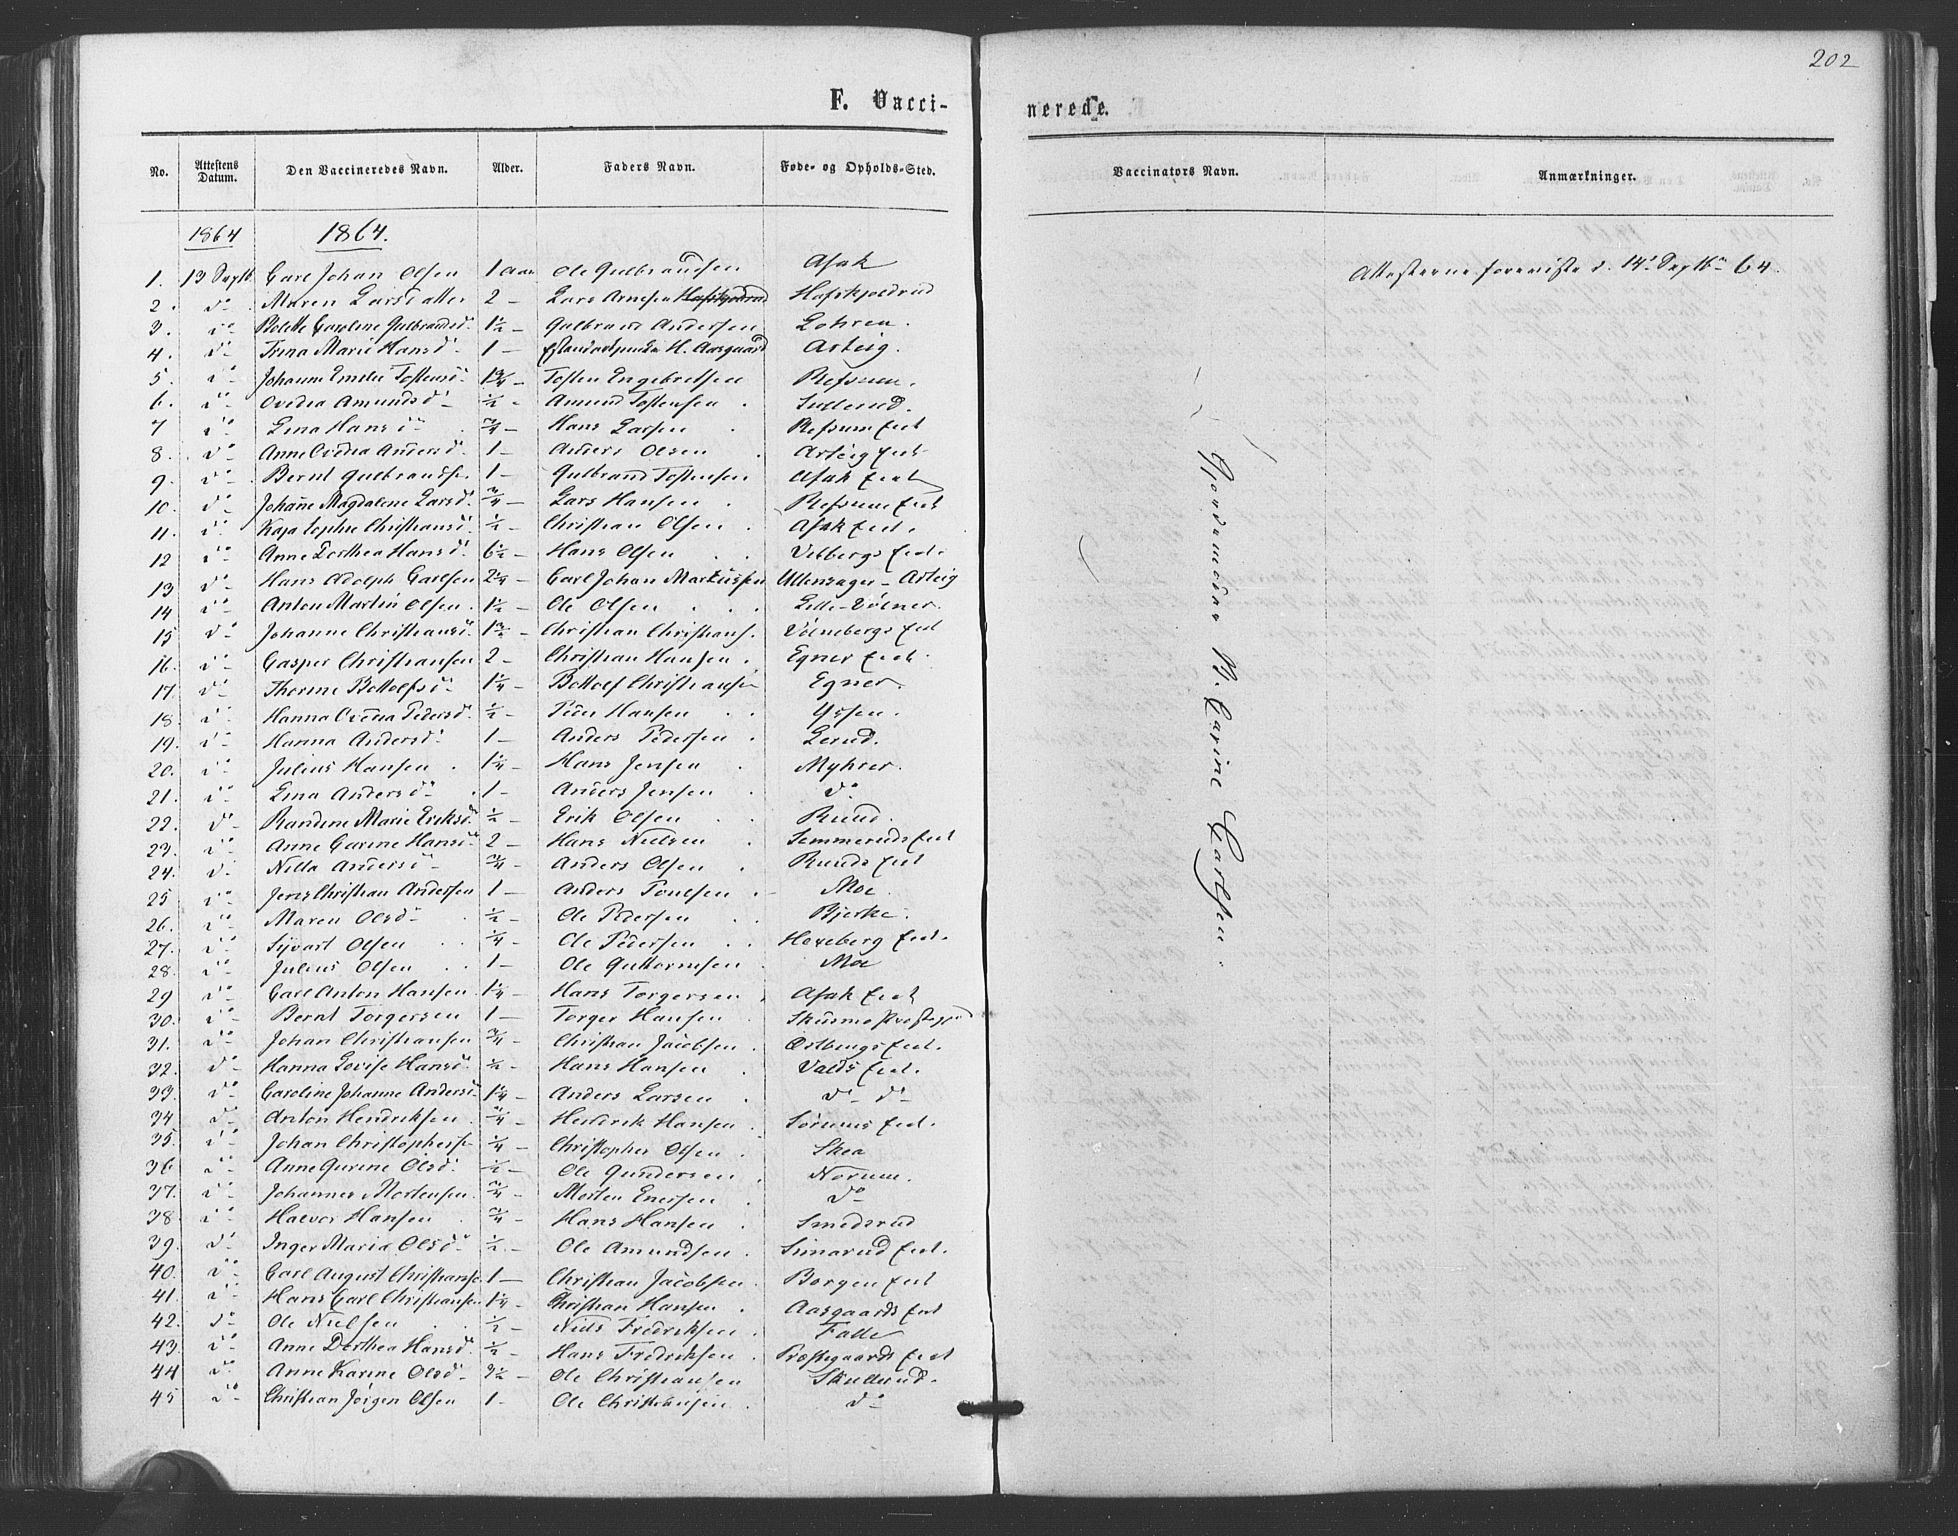 202
F. Vacci-
nerede.
No. Attestens Datum. Den Vaccineredes Navn. Alder. Faders Navn. Føde- og Opholds-Sted. Vaccinators Navn. Anmærkninger.
1864 1864.
1. 13 Septb. Carl Johan Olsen 1 Aar Ole Gulbrandsen Asak Attesterne foreviste d. 14 Septbr 64.
2. do Maren Larsdatter 2 — Lars Arnesen Hafskjoldrud
3. do Bolette Caroline Gulbrandsd. 1½ — Gulbrand Andersen Lohren.
4. do Trina Marie Hansd. 1 — H. Aasgaard Arteig.
5. do Johanne Emelie Tostensd. 1¾ — Tosten Engebretsen Refsum.
6. do Ovedia Amundsd. ½ — Amund Tostensen Sullerud.
7 do Lina Hansd. ¾ — Hans Larsen Refsum Eiet
8. do Anne Ovedia Andersd. 1 — Anders Olsen Arteig Eiet
9. do Bernt Gulbrands. 1 — Gulbrand Tostensen Asak Eiet
10. do Johanne Magdalene Larsd. ¾ — Lars Hansen Refsum Eiet
11. do Kaja Sophie Christiansd. ½ — Christian Olsen Asak Eiet.
12 do Anne Dorthea Hansd. 6½ — Hans Olsen Vilbergs Eiet.
13. do Hans Adolph Carlsen 2¼ — Carl Johan Markussen Ullensager - Arteig
14. do Anton Martin Olsen 1½ — Ole Olsen Lille-Vølner.
15 do Johanne Christiansd. 1½ — Christian Christians. Vølnebergs Eiet
16. do Casper Christiansen 2 — Christian Hansen Egner Eiet.
17. do Thorine Bottolfsd. 1¼ — Bottolf Christiansen Egner.
18 do Hanna Ovedia Pedersd. ½ — Peder Hansen Yssen.
19. do Hanna Andersd. 1 — Anders Pedersen Lerud.
20. do Julius Hansen 1¼ — Hans Jensen Myhrer.
21. do Lina Andersd. 1 — Anders Jensen do
22. do Randine Marie Eriksd. ½ — Erik Olsen Ruud.
23. do Anne Gurine Hansd. 2 — Hans Nielsen Semmeruds Eiet
24. do Nilla Andersd. ¾ — Anders Olsen Ruuds Eiet
25 do Jens Christian Andersen 1 — Anders Poulsen Moe
26. do Maren Olsd. ½ — Ole Pedersen Bjerke.
27. do Syvart Olsen ¼ — Ole Pedersen Hexeberg Eiet.
28. do Julius Olsen 1 — Ole Guttormsen Moe
29 do Carl Anton Hansen 1¼ — Hans Torgersen Asak Eiet
30. do Bernt Torgersen 1 — Torger Hansen
31. do Johan Christiansen ¾ — Christian Jacobsen Østbyngs Eiet.
32. do Hanna Lovise Hansd. ½ — Hans Hansen Valds Eiet.
33. do Caroline Johanne Andersd. 1¼ — Anders Larsen do do
34 do Anton Hendriksen ¾ — Hendrik Hansen Sørums Eiet.
35. do Johan Christophers. ¼ — Christopher Olsen Skea
36 do Anne Gurine Olsd. ½ — Ole Gundersen Norum.
37. do Johannes Mortensen ¾ — Morten Enersen do
38 do Halvor Hansen ¾ — Hans Hansen Smedsrud
39. do Inger Maria Olsd. ½ — Ole Amundsen Simarud Eiet.
40. do Carl August Christians. 1 — Christian Jacobsen Borgen Eiet
41. do Hans Carl Christiansen 1¼ — Christian Hansen Aasgaards Eiet
42. do Ole Nielsen ½ — Niels Fredriksen Falle
43. do Anne Dorthea Hansd. ½ — Hans Fredriksen Præstegaards Eiet
44 do Anne Karine Olsd. 3½ — Ole Christiansen Skullerud.
45 do Christian Jørgen Olsen 1 — Ole Christiansen do
Gjordemoder M. Carine Carlsen.